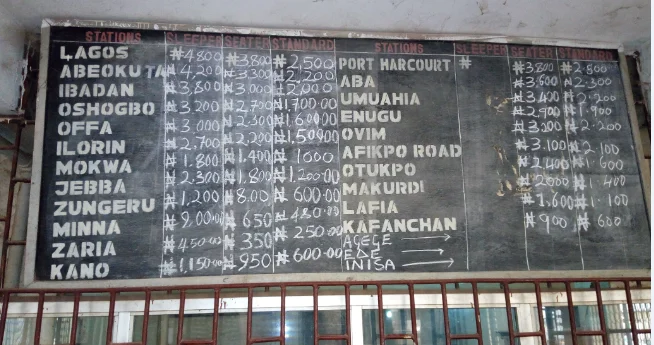 STATIONS SLEEPER SEATER STANDARD STATIONS SLEEPER SEATER STANDARD
LAGOS ₦4800 ₦3800 ₦2,500 PORT HARCOURT ₦ ₦3,800 ₦2·800
ABEOKUTA ₦4,200 ₦3,300 ₦2,200 ABA ₦3,600 ₦2·300
IBADAN ₦3,800 ₦3,000 ₦2,000 UMUAHIA ₦3,400 ₦2·200
OSHOGBO ₦3,200 ₦2,700 ₦1,700·00 ENUGU ₦2,900 ₦1·900
OFFA ₦3,000 ₦2,300 ₦1,600·00 OVIM ₦2·200
ILORIN ₦2,700 ₦2,200 ₦1,500·00 AFIKPO ROAD ₦3,100 ₦2·100
MOKWA ₦1,800 ₦1,400 ₦1000 OTUKPO ₦2,400 ₦1·600
JEBBA ₦2,300 ₦1,800 ₦1,200·00 MAKURDI ₦2000 ₦1·400
ZUNGERU ₦1,200 ₦800 ₦600·00 LAFIA ₦1,600 ₦1·100
MINNA ₦9,00·00 ₦650 ₦480·00 KAFANCHAN ₦900 ₦600
ZARIA ₦450·00 ₦350 ₦250·00 AGEGE →
KANO ₦1,150·00 ₦950 ₦600·00 EDE →
INISA →